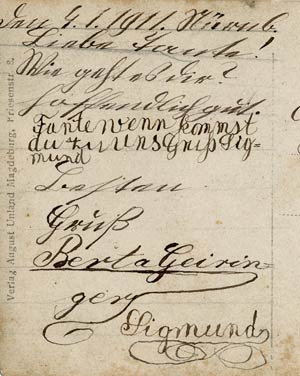 Den 4.1.1911. Nürnb.
Liebe Tante!
Wie geht es dir?
hoffendlich gut.
Tante wenn kommst
du zu uns Gruß Sig=
mund
Besten
Gruß
Berta Geirin=
ger
Sigmund
Verlag August Unland Magdeburg, Friesenstr. 3.